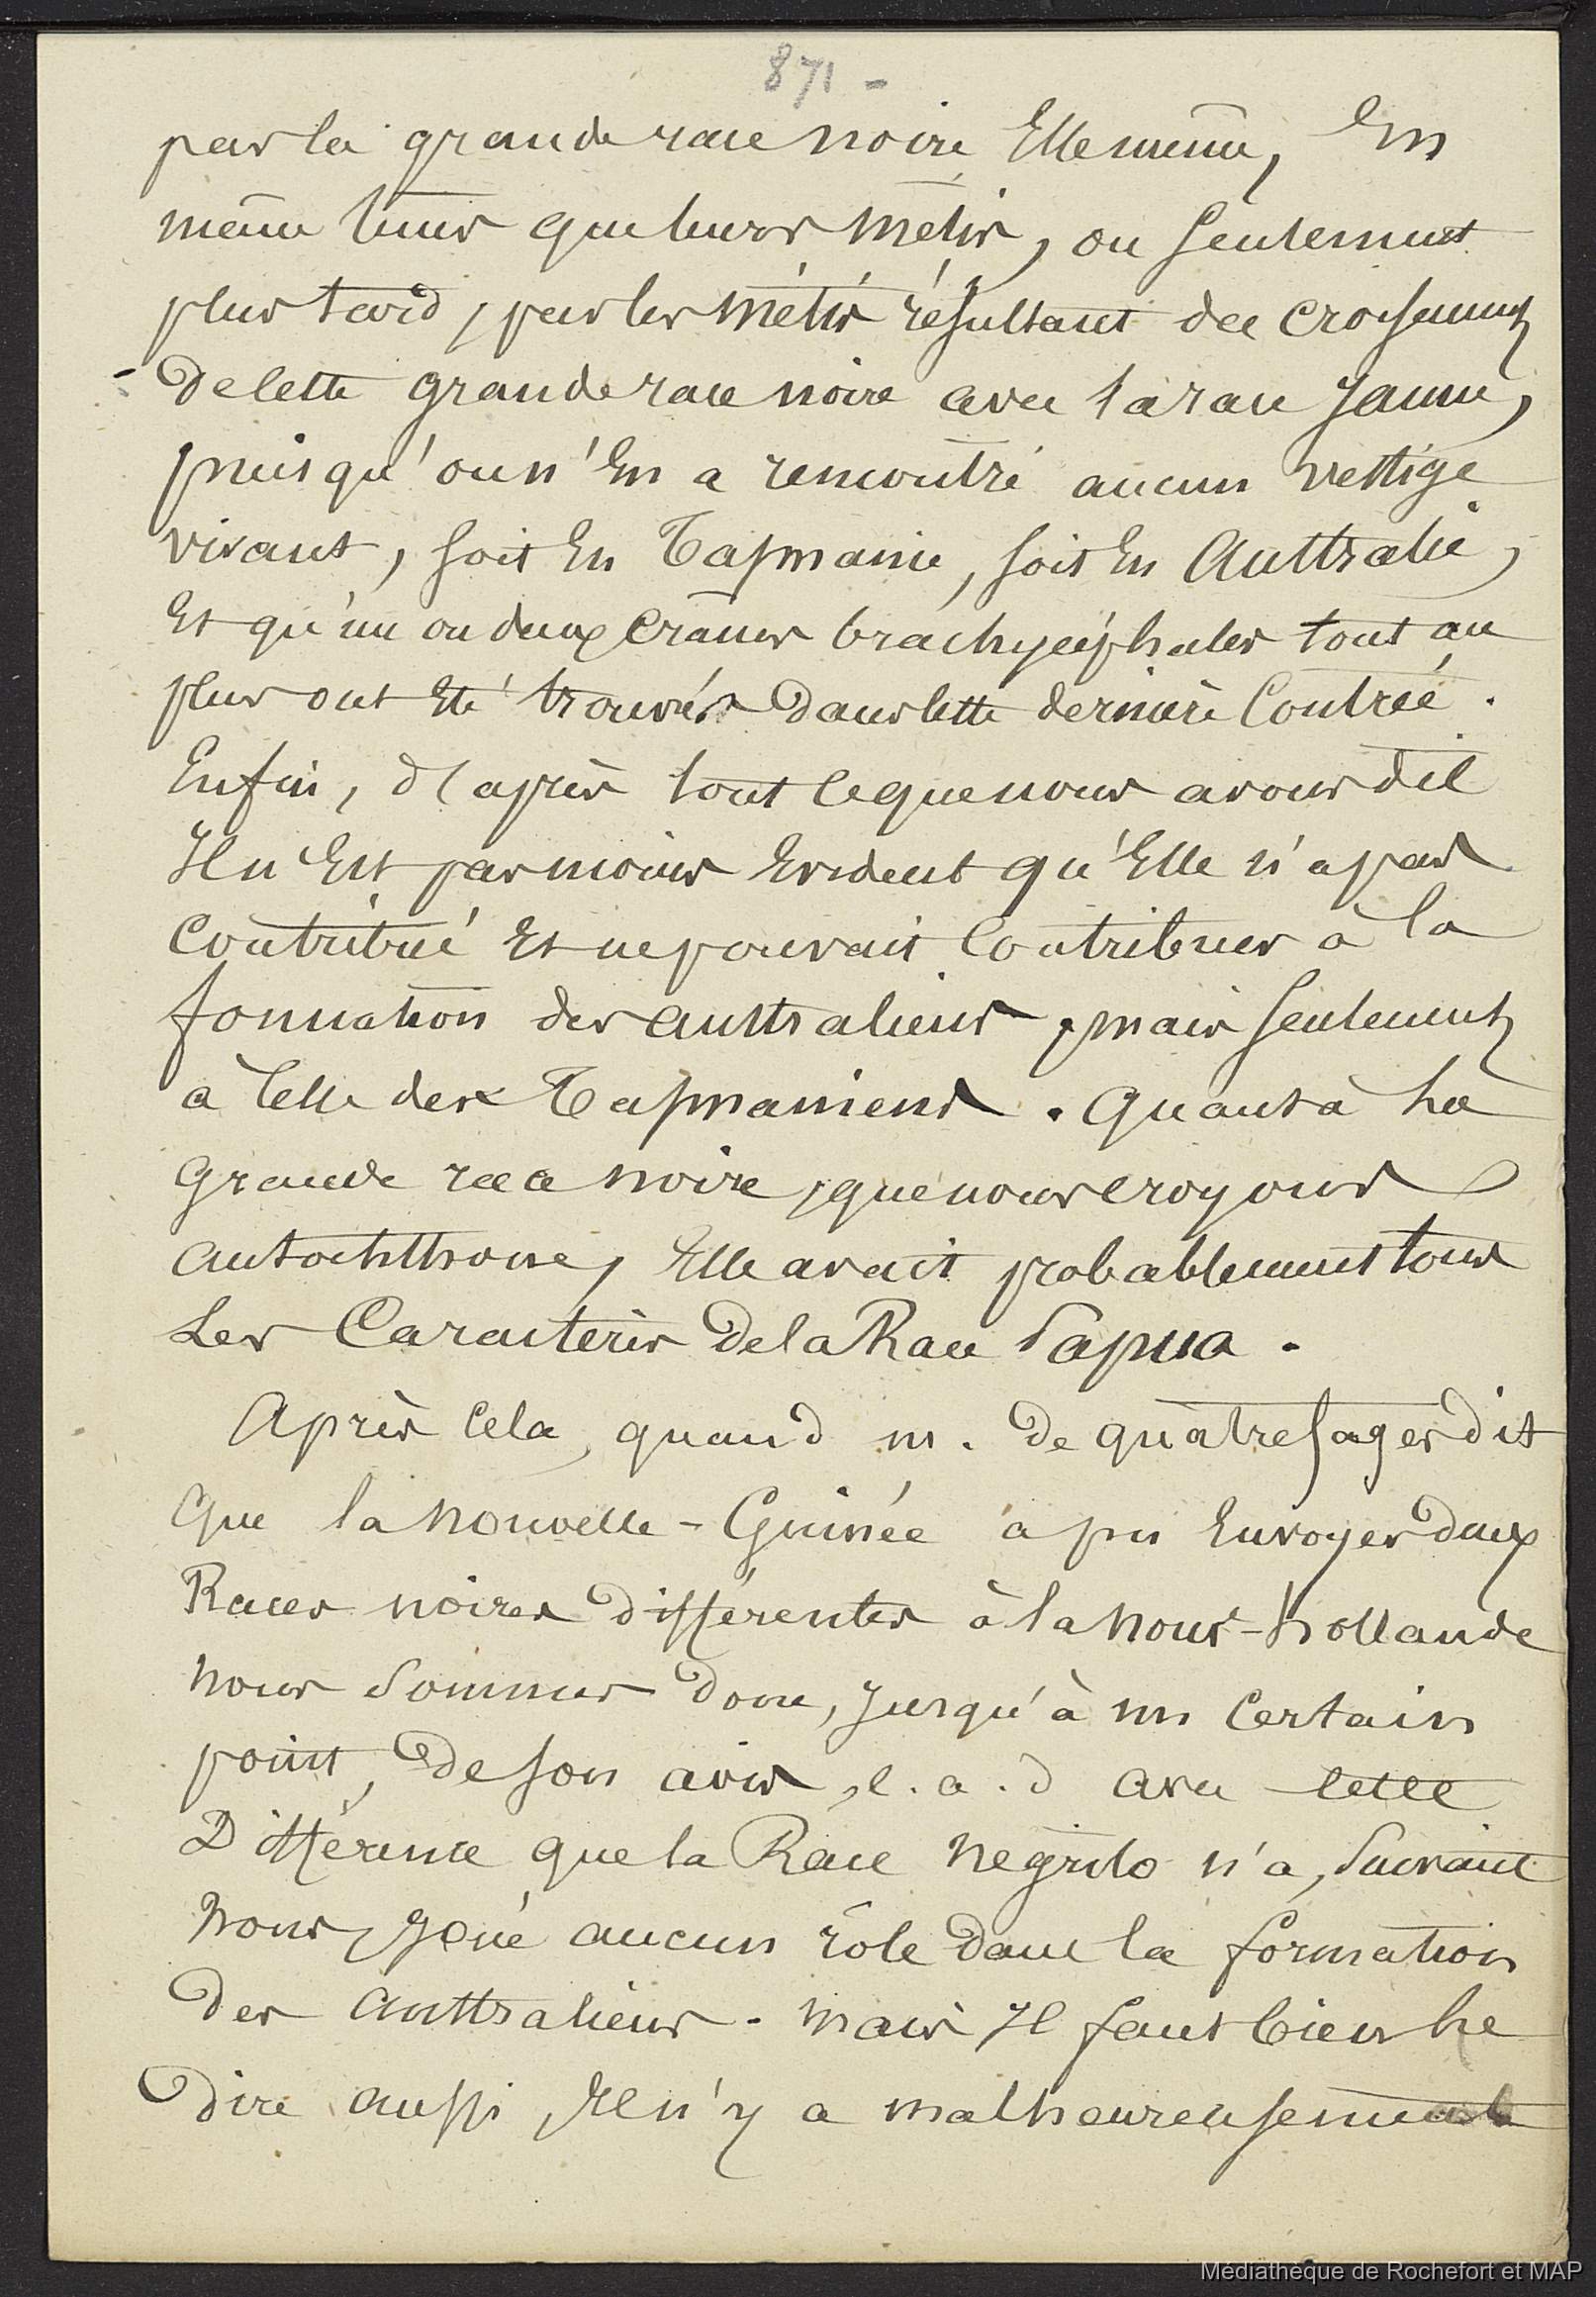 871 -
par la grande race noire Elle même, En
même temps que leurs métis, ou seulement
plus tard, par les métis résultant des croisements
De cette grande race noire avec la race Jaune,
puisqu'on n'En a rencontré aucun vestige
vivant, soit En Tasmanie, soit En Australie,
Et qu'un ou deux crânes brachycéphales tout au
plus ont Eté trouvés Dans cette dernière Contrée.
Enfin, d'après tout ce que nous avons dit
Il n'Est pas moins Evident qu'Elle n'a pas
Contribué Et ne pouvait Contribuer à la
formation des australiens, mais seulement
à Celle des Tasmaniens. Quant à La
Grande race noire, que nous croyons
autochthone, Elle avait probablement tous
Les Caractères De la Race Papua.
Après Cela, quand m. De quatrefages dit
Que la nouvelle-Guinée a pu Envoyer Deux
Races noires Différentes à la nouv-hollande
nous Sommes Donc, Jusqu'à un Certain
point, De son avis, c. a. d avec cette
Différence que la Race Négrito n'a, Suivant
Nous, Joué aucun rôle Dans la formation
Des Australiens. Mais Il faut bien Le
Dire aussi, Il n'y a malheureusement
Médiathèque de Rochefort et MAP